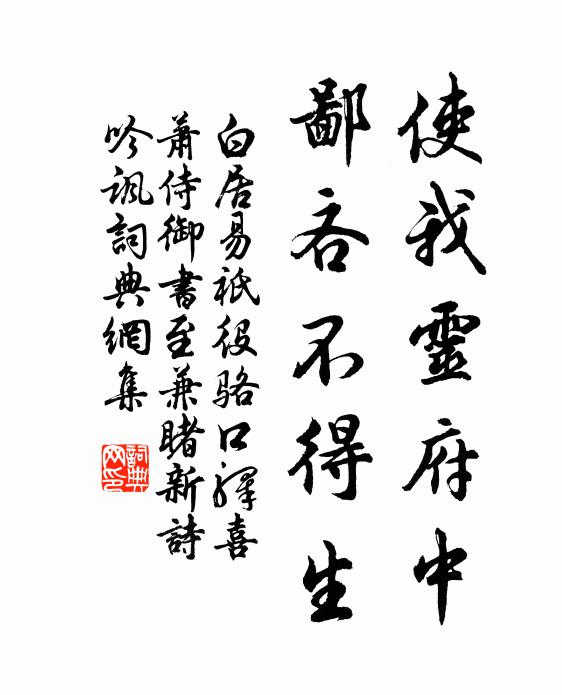 使我靈府中
鄙吝不得生
白居易祇役骆口驛喜
蕭侍御書至兼睹新詩
吟諷詞典網集
詞典
网印